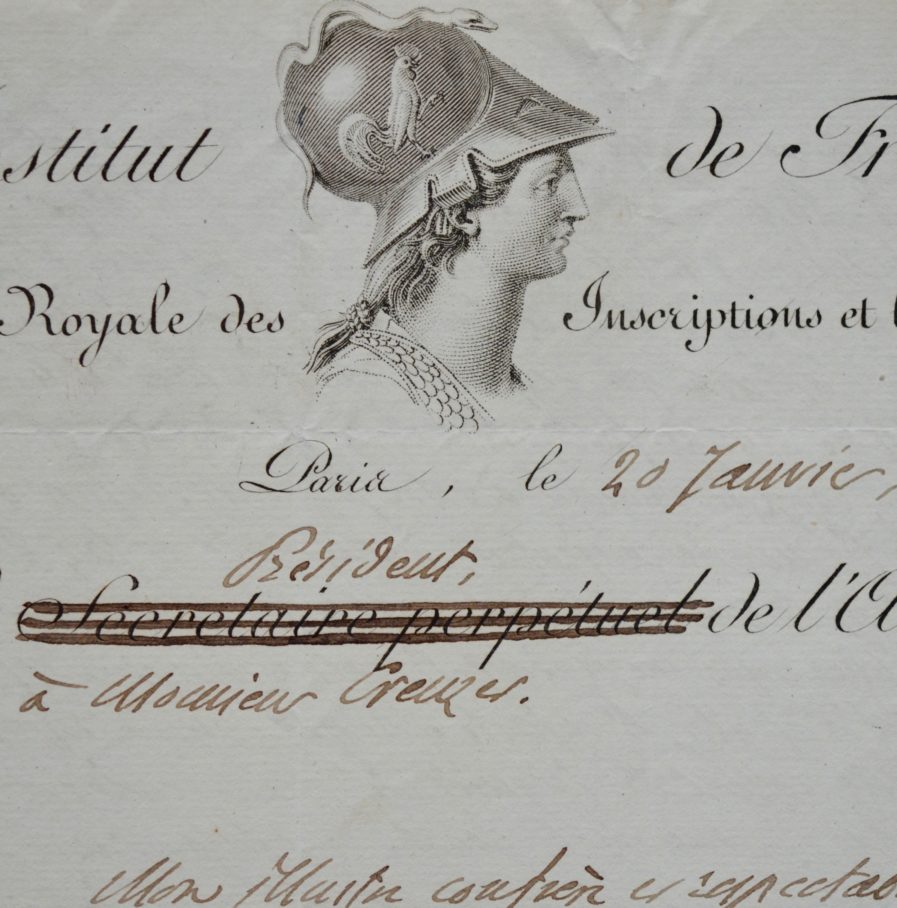 stitut de Fr
Royale des Inscriptions et
Paris, le 20 Janvier,
Président,
Secrétaire perpétuel de l'A
à Monsieur Creuzer.
Mon illustre confrère et respectab